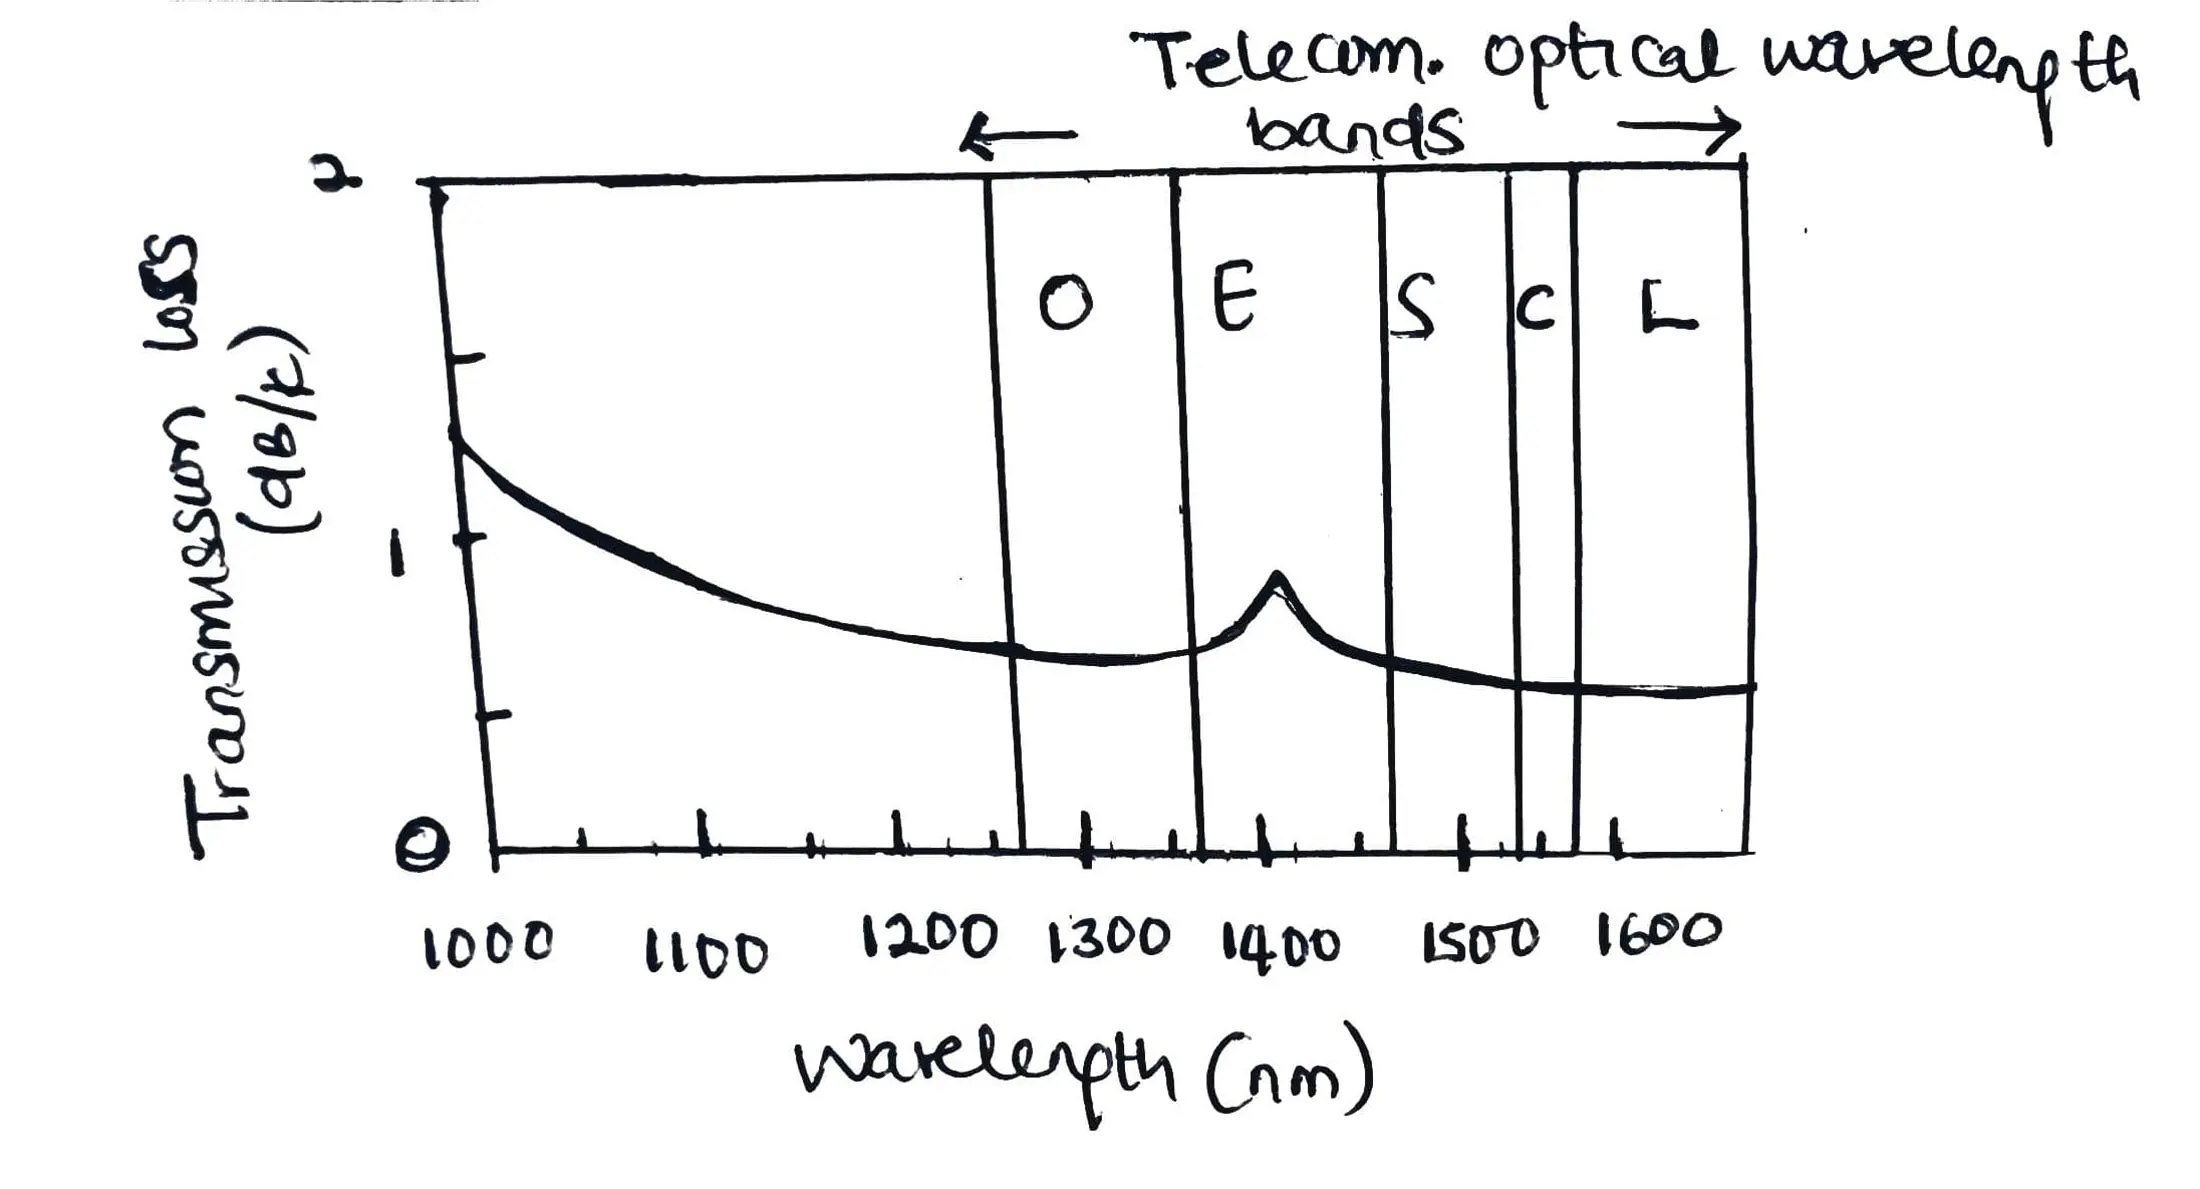 Telecom. optical wavelength
bands
2
Transmission loss
(dB/k)
O E S C L
1
0
1000 1100 1200 1300 1400 1500 1600
wavelength (nm)